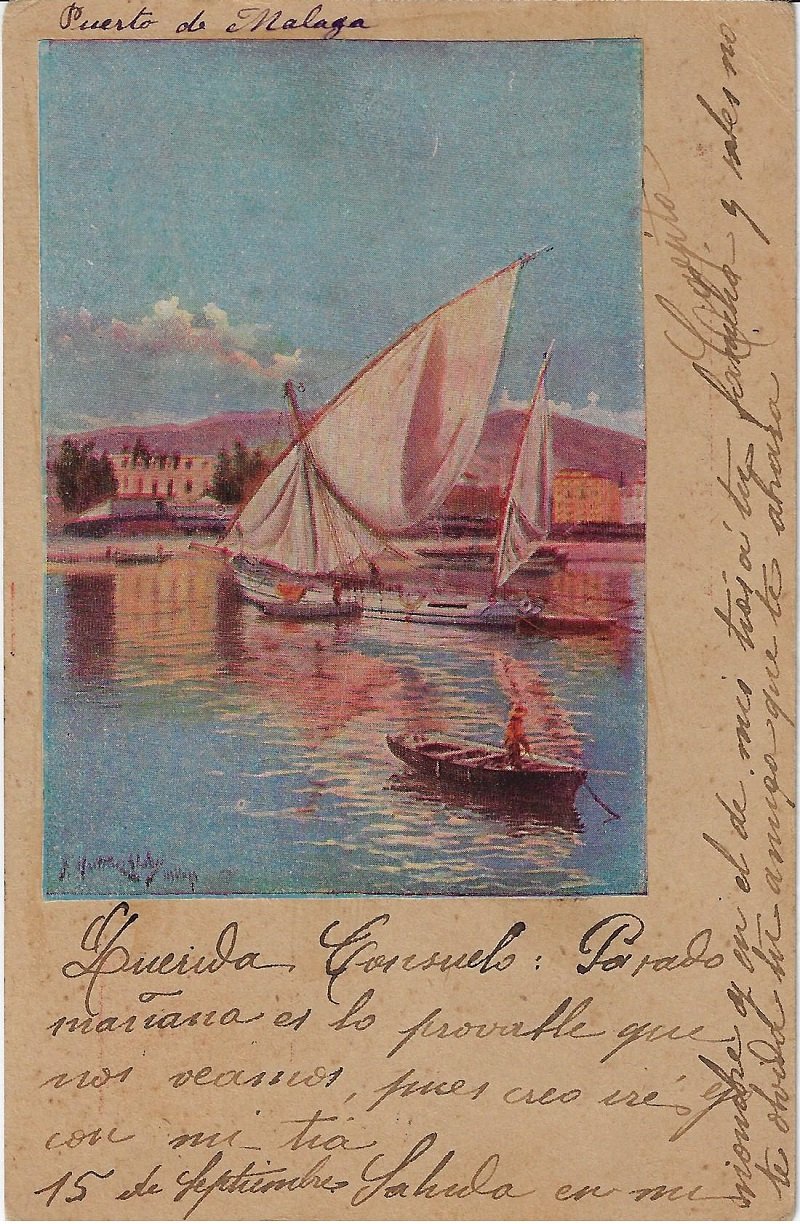 Puerto de Malaga
Querida Consuelo: Parado
mañana es lo provable que
nos veamos, pues creo iré
con mi tia
15 de Septiembre Saluda en mi
nombre y en el de mis tios á tu familia y sabes no
te olvida tu amiga que te abraza
Pepita